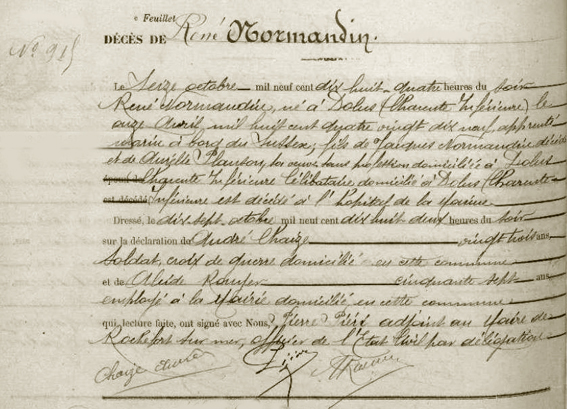 e Feuillet
N° 915
DÉCÈS DE René Normandin.
Le Seize octobre mil neuf cent dix huit quatre heures du soir
René Normandin, né à Dolus (Charente Inférieure) le
onze Avril mil huit cent quatre vingt dix neuf, apprenti
marin à bord du fils de Jacques Normandin décédé
et de sa veuve sans profession domiciliée à Dolus
époux d Charente Inférieure Célibataire, domicilié à Dolus (Charente
est décédé Inférieure est décédé à l'hôpital de la Marine
Dressé, le dix sept octobre mil neuf cent dix huit deux heures du soir
sur la déclaration de André Chaize vingt trois ans,
soldat, croix de guerre domicilié en cette commune
et de Alcide cinquante sept ans,
employé à la Mairie domicilié en cette commune
qui, lecture faite, ont signé avec Nous, Pierre adjoint au Maire de
Rochefort sur mer, officier de l'Etat Civil par délégation
Chaize